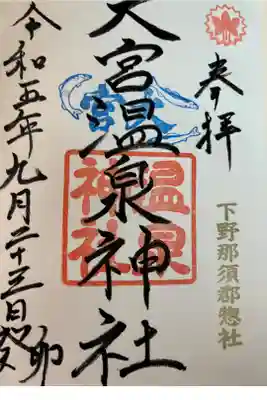 奉拝
下野那須郡惣社
大宮温泉神社
温泉
神社
令和五年九月二十三日